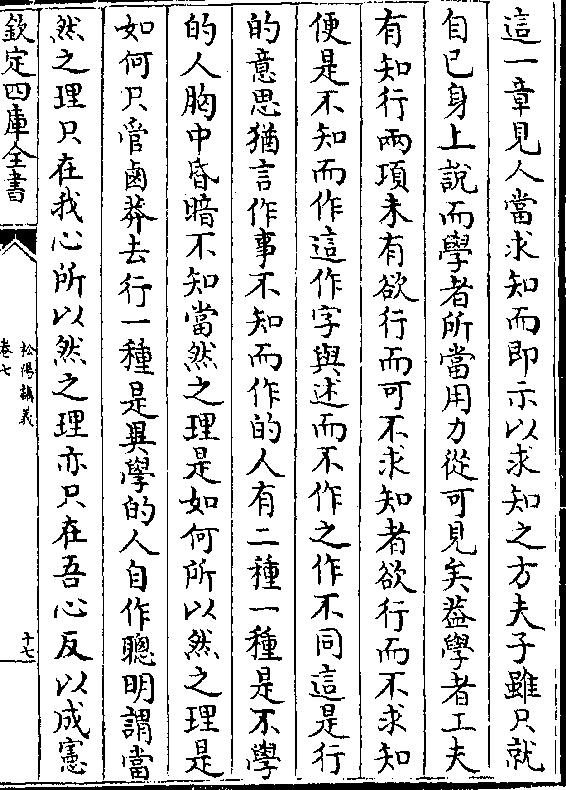 這一章見人當求知而即示以求知之方夫子雖只就
自己身上說而學者所當用力從可見矣葢學者工夫
有知行兩項未有欲行而可不求知者欲行而不求知
便是不知而作這作字與述而不作之作不同這是行
的意思猶言作事不知而作的人有二種一種是不學
的人胸中昏暗不知當然之理是如何所以然之理是
如何只管鹵莽去行一種是異學的人自作聰明謂當
然之理只在我心所以然之理亦只在吾心反以成憲
欽定四庫全書
松陽講義
卷七
十七